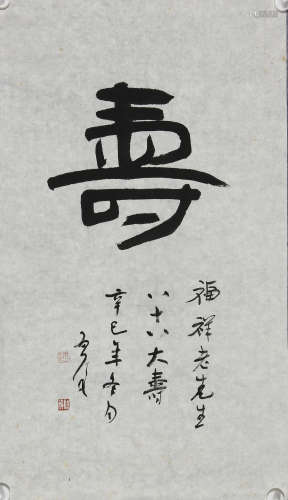 壽
福祥老先生
八十八大壽
辛巳年冬月